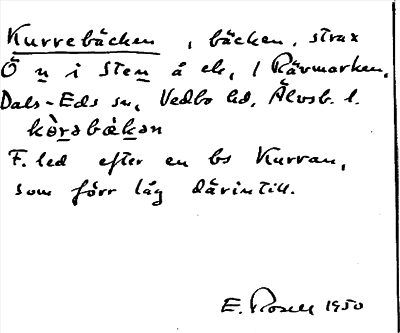 Kurrebäcken, bäcken, strax
Ö n i Sten å ek, 1 Rävmarken,
Dals-Eds sn, Vedbo hd, Älvsb. l.
kòrəbäkən
F. led efter en bs Kurran,
som förr låg därintill.
E. Rosell 1950